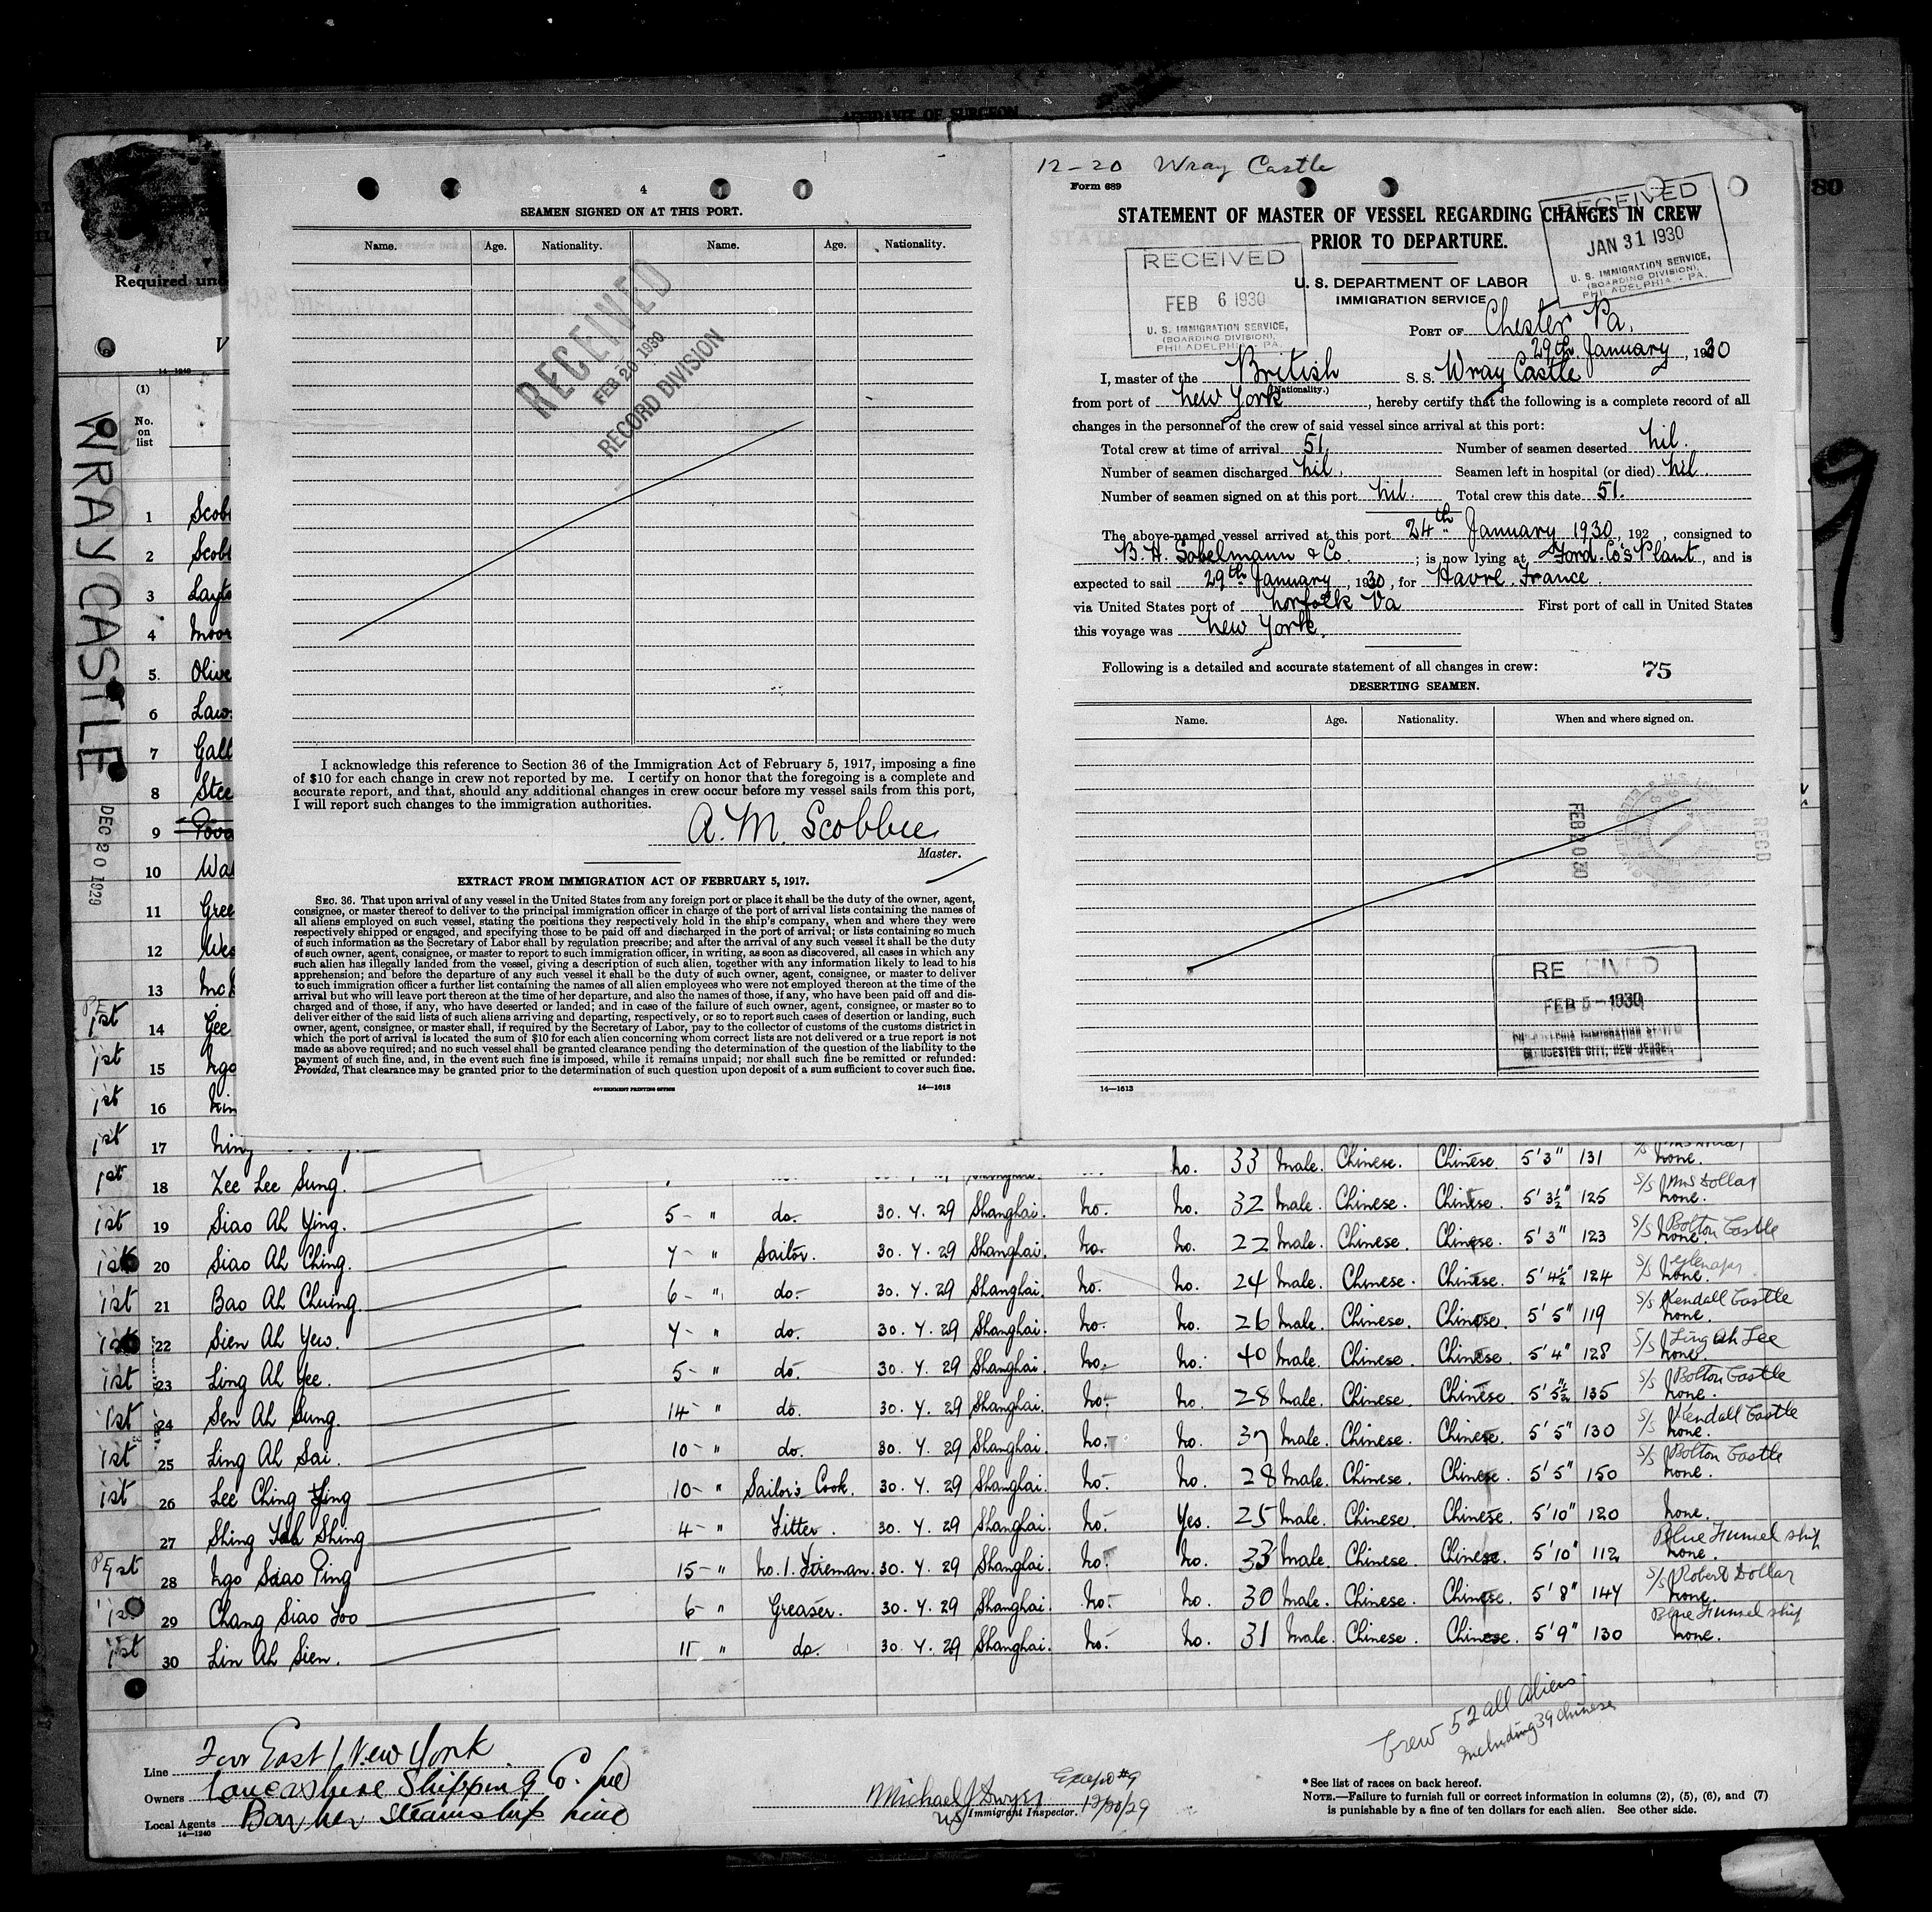 AFFIDAVIT OF SURGEON
4
SEAMEN SIGNED ON AT THIS PORT.
Name. Age. Nationality. Name. Age. Nationality.
RECEIVED
FEB 20 1930
RECORD DIVISION
I acknowledge this reference to Section 36 of the Immigration Act of February 5, 1917, imposing a fine
of $10 for each change in crew not reported by me. I certify on honor that the foregoing is a complete and
accurate report, and that, should any additional changes in crew occur before my vessel sails from this port,
I will report such changes to the immigration authorities.
A. M. Scobbie
Master.
EXTRACT FROM IMMIGRATION ACT OF FEBRUARY 5, 1917.
SEC. 36. That upon arrival of any vessel in the United States from any foreign port or place it shall be the duty of the owner, agent,
consignee, or master thereof to deliver to the principal immigration officer in charge of the port of arrival lists containing the names of
all aliens employed on such vessel, stating the positions they respectively hold in the ship's company, when and where they were
respectively shipped or engaged, and specifying those to be paid off and discharged in the port of arrival; or lists containing so much
of such information as the Secretary of Labor shall by regulation prescribe; and after the arrival of any such vessel it shall be the duty
of such owner, agent, consignee, or master to report to such immigration officer, in writing, as soon as discovered, all cases in which any
such alien has illegally landed from the vessel, giving a description of such alien, together with any information likely to lead to his
apprehension; and before the departure of any such vessel it shall be the duty of such owner, agent, consignee, or master to deliver
to such immigration officer a further list containing the names of all alien employees who were not employed thereon at the time of the
arrival but who will leave port thereon at the time of her departure, and also the names of those, if any, who have been paid off and dis-
charged and of those, if any, who have deserted or landed; and in case of the failure of such owner, agent, consignee, or master so to
deliver either of the said lists of such aliens arriving and departing, respectively, or so to report such cases of desertion or landing, such
owner, agent, consignee, or master shall, if required by the Secretary of Labor, pay to the collector of customs of the customs district in
which the port of arrival is located the sum of $10 for each alien concerning whom correct lists are not delivered or a true report is not
made as above required; and no such vessel shall be granted clearance pending the determination of the question of the liability to the
payment of such fine, and, in the event such fine is imposed, while it remains unpaid; nor shall such fine be remitted or refunded:
Provided, That clearance may be granted prior to the determination of such question upon deposit of a sum sufficient to cover such fine.
GOVERNMENT PRINTING OFFICE 14—1613
12-20 Wray Castle
Form 689
STATEMENT OF MASTER OF VESSEL REGARDING CHANGES IN CREW
PRIOR TO DEPARTURE.
RECEIVED
JAN 31 1930
U. S. IMMIGRATION SERVICE,
(BOARDING DIVISION),
PHILADELPHIA - PA.
RECEIVED
FEB 6 1930
U. S. IMMIGRATION SERVICE,
(BOARDING DIVISION),
PHILADELPHIA, PA.
U. S. DEPARTMENT OF LABOR
IMMIGRATION SERVICE
PORT OF Chester Pa.
29th January, 1930
I, master of the British S. S. Wray Castle
(Nationality.)
from port of New York, hereby certify that the following is a complete record of all
changes in the personnel of the crew of said vessel since arrival at this port:
Total crew at time of arrival 51. Number of seamen deserted Nil.
Number of seamen discharged Nil. Seamen left in hospital (or died) Nil.
Number of seamen signed on at this port Nil. Total crew this date 51.
The above-named vessel arrived at this port 24th January 1930, 192 , consigned to
B. H. Sobelmann & Co. ; is now lying at Ford Co's Plant, and is
expected to sail 29th January, 1930, for Havre. France.
via United States port of Norfolk Va First port of call in United States
this voyage was New York.
Following is a detailed and accurate statement of all changes in crew: 75
DESERTING SEAMEN.
Name. Age. Nationality. When and where signed on.
FEB 20 30
REC'D
RECEIVED
FEB 5 - 1930
PHILADELPHIA IMMIGRATION STATION
GLOUCESTER CITY, NEW JERSEY
14—1613
80
9
Required und
V
14—1240
(1)
No.
on
list
WRAY CASTLE
DEC 20 1929
1 Scob
2 Scob
3 Layto
4 Moor
5 Olive
6 Law
7 Gall
8 Stee
9 Pova
10 Wa
11 Gree
12 Wes
13
PE
1st 14 Gee
1st 15 Ngo
1st 16 Nin
1st 17 Ning No. 33 Male. Chinese. Chinese 5'3" 131 none.
1st 18 Zee Lee Sung. Shanghai.
1st 19 Siao Ah Ying. 5 - " do. 30. 4. 29 Shanghai. No. No. 32 Male. Chinese. Chinese. 5' 3½" 125 S/S Dollar none.
1st 20 Siao Ah Ching. 4 - " Sailor. 30. 4. 29 Shanghai. No. No. 22 Male. Chinese. Chinese. 5'3" 123 S/S Bolton Castle none.
1st 21 Bao Ah Chuing. 6 - " do. 30. 4. 29 Shanghai. No. No. 24 Male. Chinese. Chinese. 5'4½" 124 S/S none.
1st 22 Sien Ah Yew. 4 - " do. 30. 4. 29 Shanghai. No. No. 26 Male. Chinese. Chinese. 5' 5" 119 S/S Kendall Castle none.
1st 23 Ling Ah Yee. 5 - " do. 30. 4. 29 Shanghai. No. No. 40 Male. Chinese. Chinese. 5'4" 128 S/S Ling Ah Lee none.
1st 24 Sen Ah Sung. 14 - " do. 30. 4. 29 Shanghai. No. No. 28 Male. Chinese. Chinese 5'5½" 135 S/S Bolton Castle none.
1st 25 Ling Ah Sai. 10 - " do. 30. 4. 29 Shanghai. No. No. 37 Male. Chinese. Chinese. 5' 5" 130 S/S Kendall Castle none.
1st 26 Lee Ching Ying 10 - " Sailor's Cook. 30. 4. 29 Shanghai. No. No. 28 Male. Chinese. Chinese. 5'5" 150 S/S Bolton Castle none.
27 Shing Shing 4 - " Fitter. 30. 4. 29 Shanghai. No. Yes. 25 Male. Chinese. Chinese. 5'10" 120 none.
PE 1st 28 Ngo Saao Ping 15 - " No. 1. Fireman. 30. 4. 29 Shanghai. No. No. 33 Male. Chinese. Chinese. 5'10" 112 Blue Funnel ship none.
1st 29 Chang Siao Foo 6 - " Greaser. 30. 4. 29 Shanghai. No. No. 30 Male. Chinese. Chinese. 5'8" 144 S/S Robert Dollar none.
1st 30 Lin Ah Sien. 11 - " do. 30. 4. 29 Shanghai. No. No. 31 Male. Chinese. Chinese. 5'9" 130 Blue Funnel ship none.
Crew 52 all aliens
including 39 Chinese
Line Far East / New York
Owners Lancashire Shipping Co.
Local Agents Barber Steamship Line
14—1240
Michael J Dwyer
US Immigrant Inspector. 12/20/29
*See list of races on back hereof.
NOTE.—Failure to furnish full or correct information in columns (2), (5), (6), and (7)
is punishable by a fine of ten dollars for each alien. See other side.